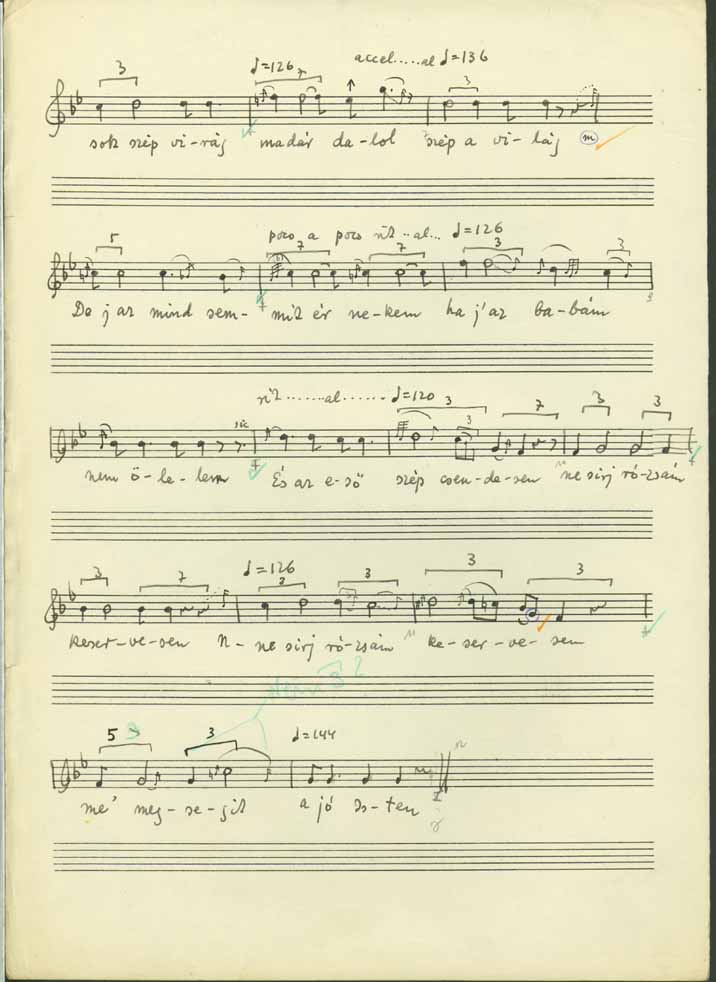 3 ♩=126 7 accel.....al ♩=136 3
sok szép vi-rág madár da-lol szép a vi-lág m
5 poco a poco rit..al... ♩=126
7 7 3 3
De j az mind sem- mit ér ne-kem ha j'az ba-bám
rit.......al...... ♩=120 3
sic 3 7 3 3
nem ö-le-lem És az e-ső szép csen-de-sen "ne sirj ró-zsám
3 7 ♩=126 3 3 3 3
keser-ve-sen n- ne sirj ró-zsám" ke-ser-ve-sen
nem 3?
5 3 3 ♩=144
me' meg-se-git a jó Is-ten